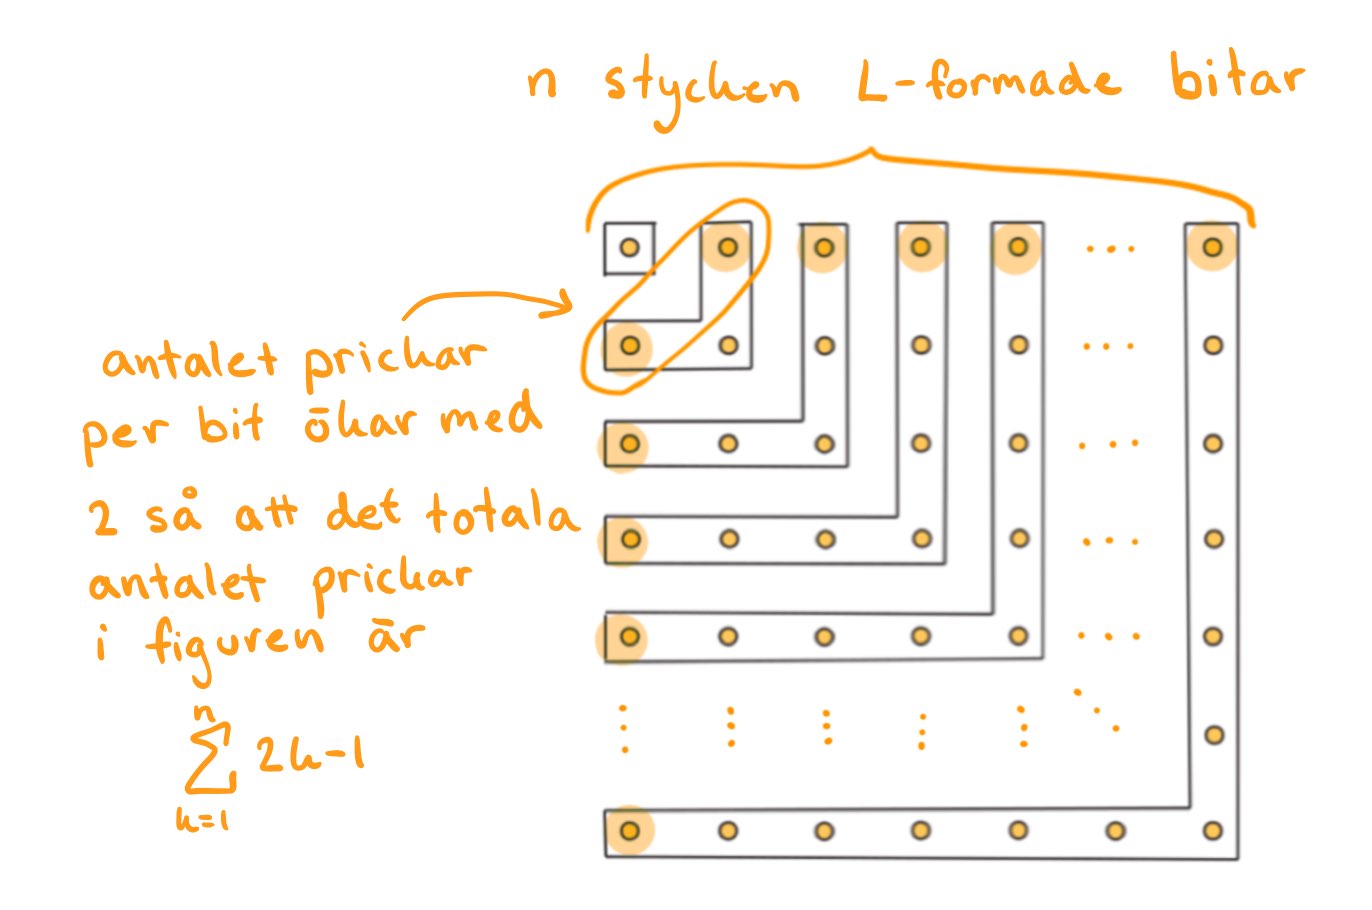 n stycken L-formade bitar
antalet prickar
per bit ökar med
2 så att det totala
antalet prickar
i figuren är
n
∑ 2k-1
k=1